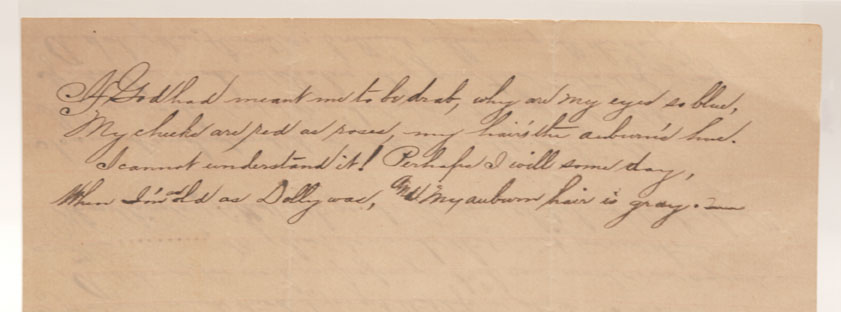 If God had meant me to be drab, why are my eyes so blue,
My cheeks are red as roses, my hair's the auburn's hue.
I cannot understand it! Perhaps I will some day,
When I'm old as Dolly was, and my auburn hair is gray.